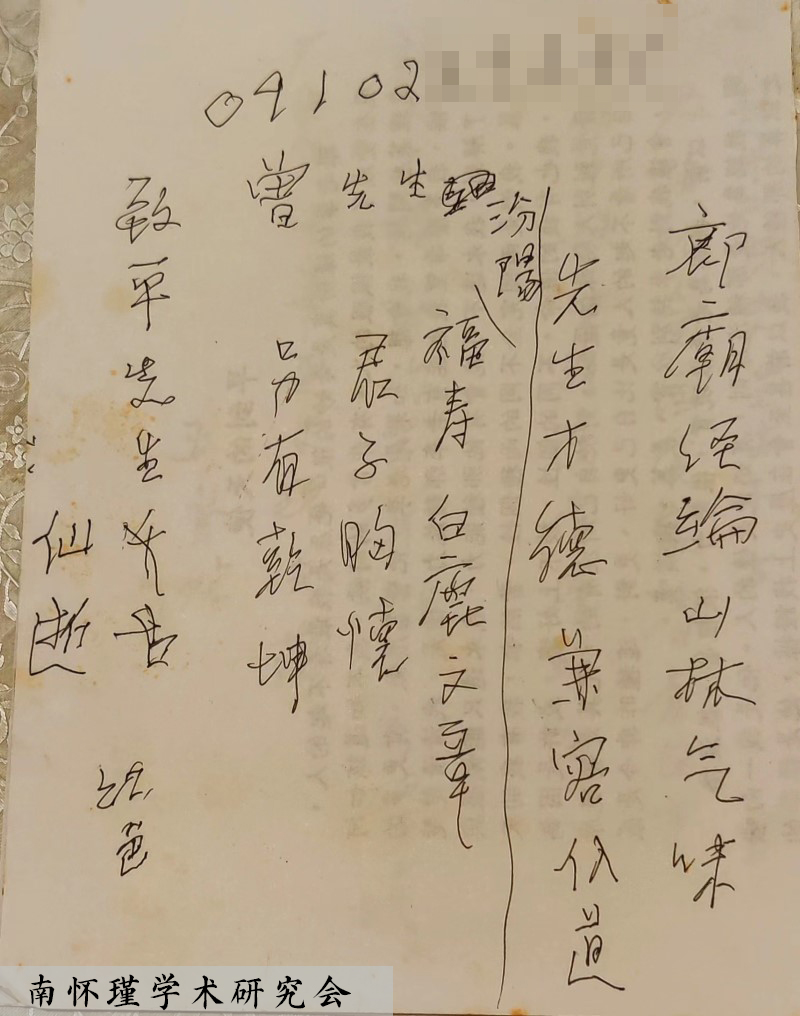 廊廟经綸山林气味
先生才德兼容仙道
汾陽福寿白鹿文章
君子胸懷
另有乾坤
04102
曾先生
敬平先生千古
仙逝
南怀瑾学术研究会